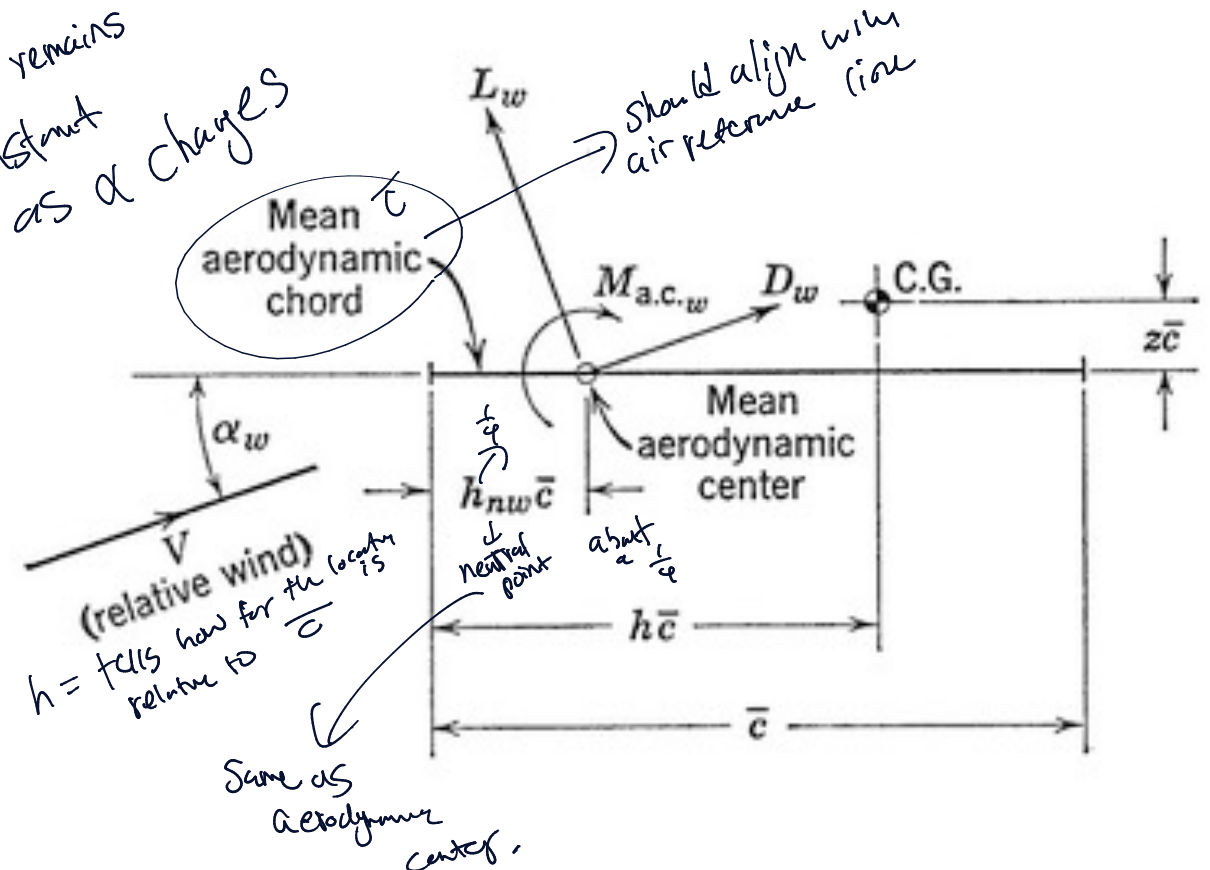 remains
stant
as α changes
L_w
should align with
air reference line
Mean c̄
aerodynamic
chord
M_a.c._w
D_w
C.G.
zc̄
α_w
Mean
aerodynamic
center
1/4
h_nw c̄
V
(relative wind)
neutral
point
about
a 1/4
h = tells how far the location is
relative to c̄
hc̄
c̄
Same as
aerodynamic
center.